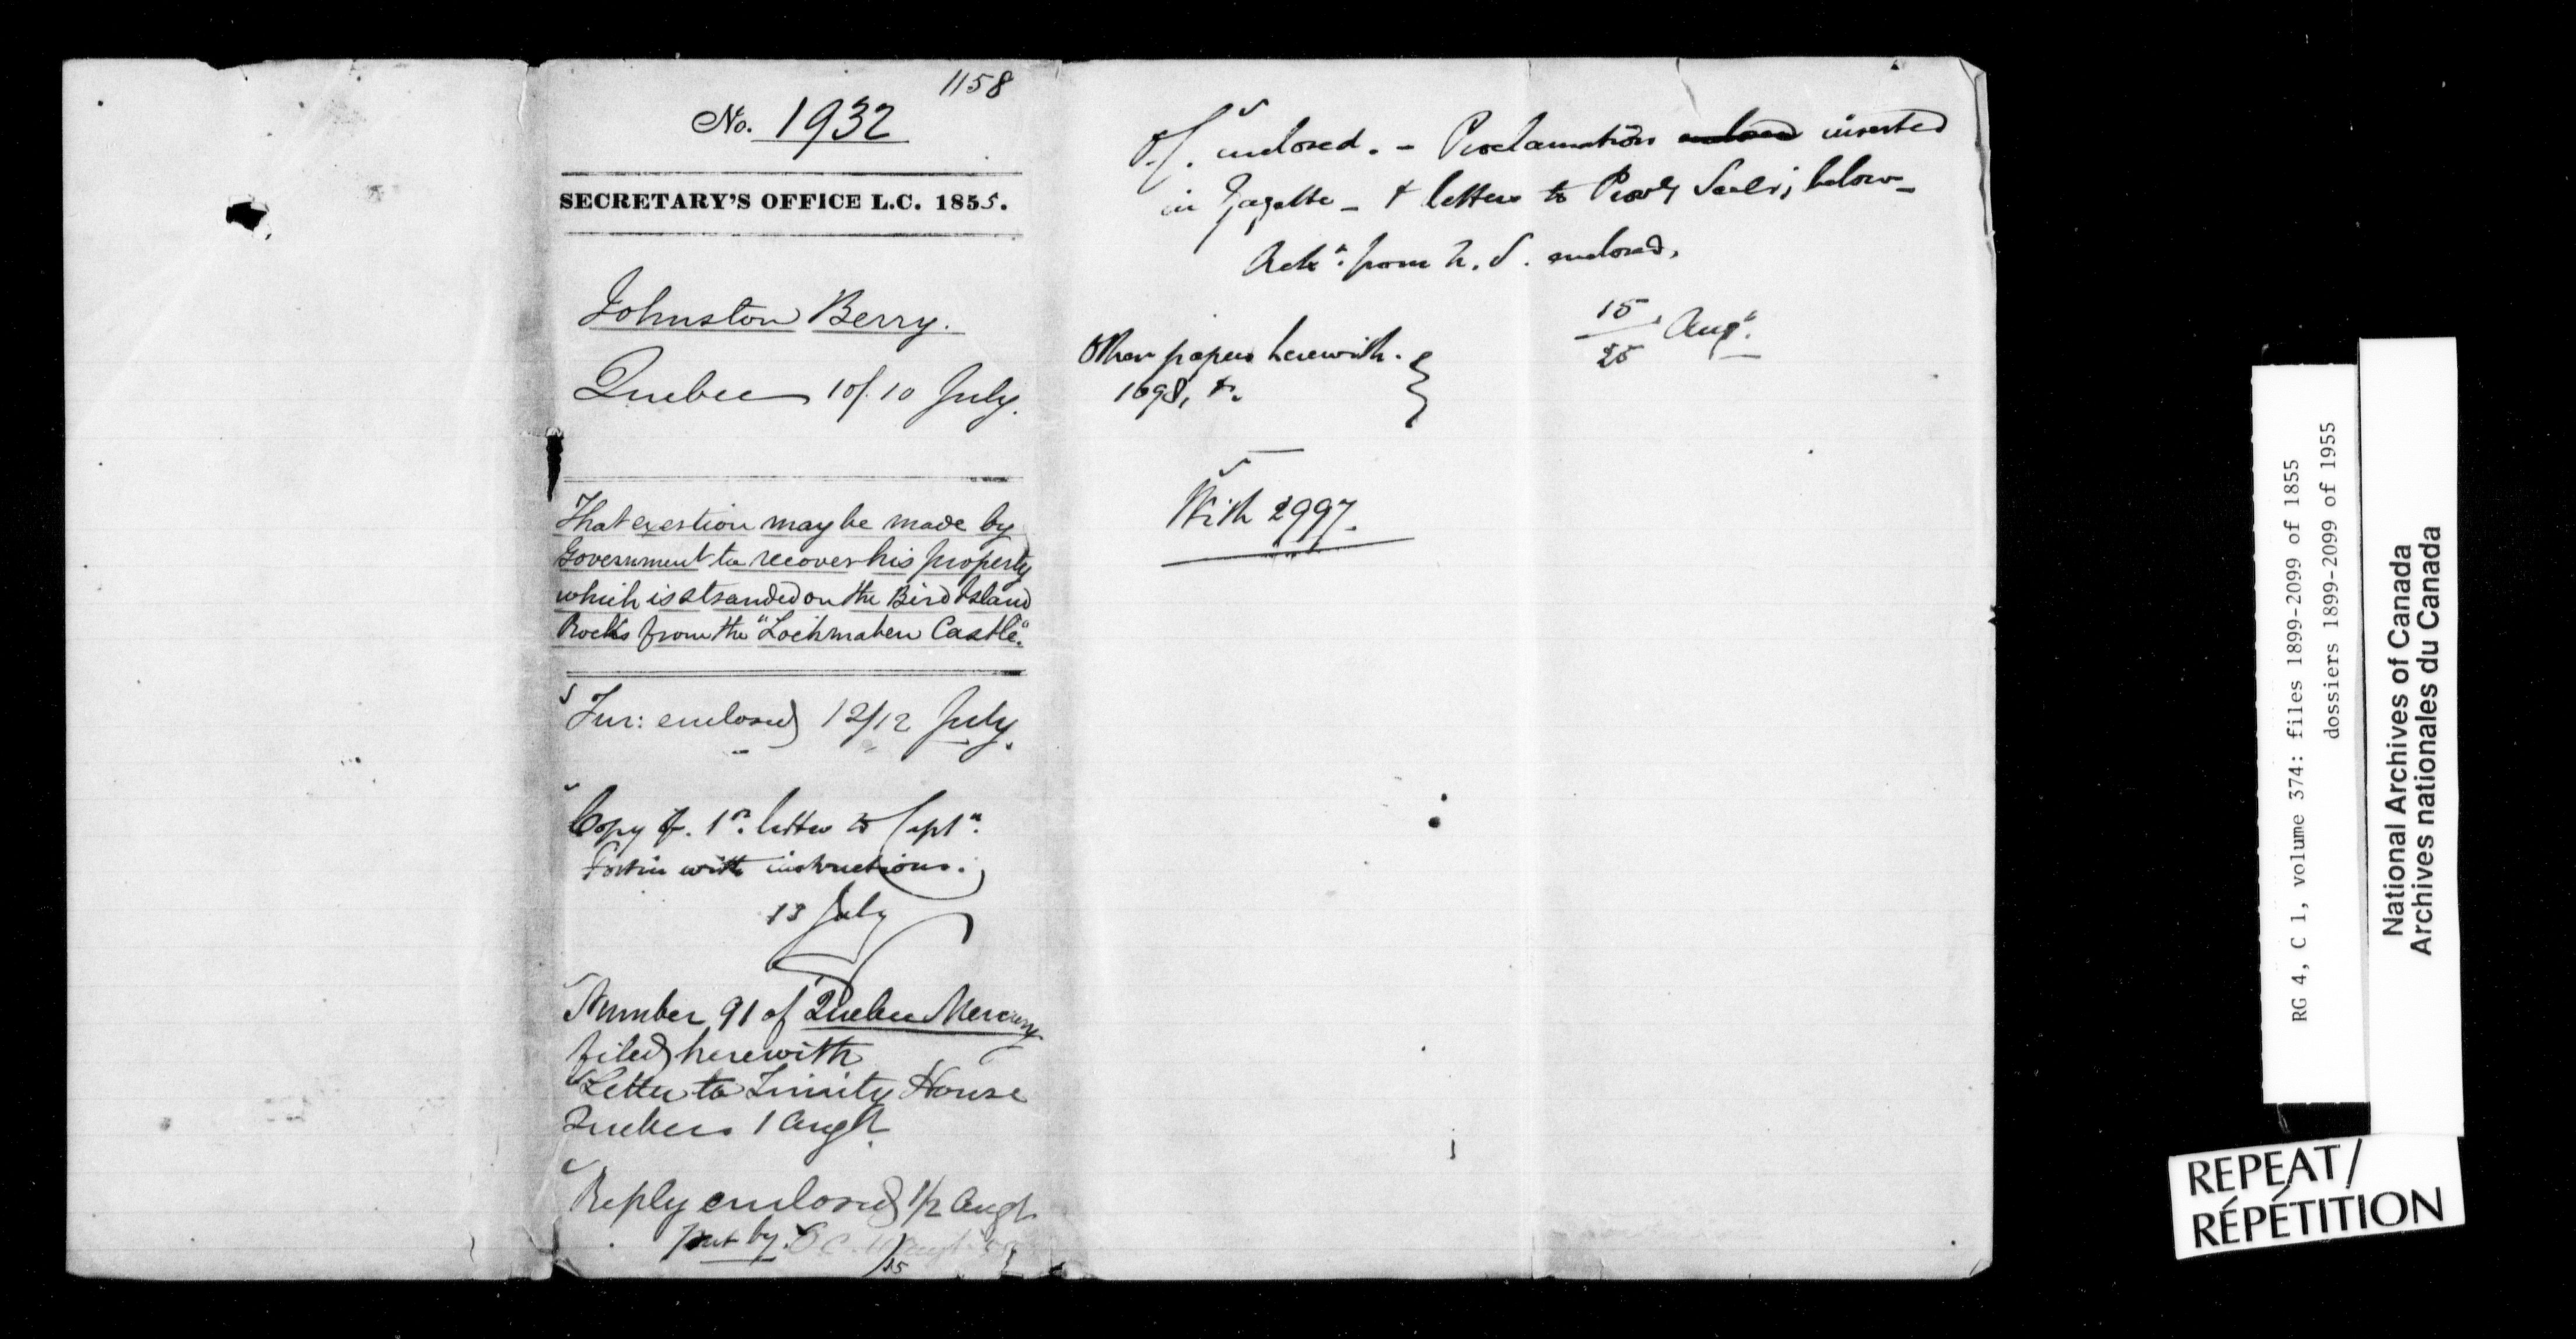 1158
No. 1932
SECRETARY'S OFFICE L.C. 1855.
Johnston Berry.
Quebec 10/10 July.
That exertion may be made by
Government to recover his property
which is stranded on the Bird Island
Rocks from the "Lochmaben Castle".
Fur: enclosed 12/12 July.
Copy of 1st letter to Captn.
Fortin with instructions.
13 July
Number 91 of Quebec Mercury
filed herewith
Letter to Trinity House
Quebec 1 Augt
Reply enclosed 1/2 Augt
Put by.
15
enclosed. - Proclamation enclosed inserted
in Gazette - & letters to Provl Secy; below -
Ackt. from enclosed.
15/25 Augt.
Other papers herewith.
1698, &c.
With 2997.
RG 4, C 1, volume 374: files 1899-2099 of 1855
dossiers 1899-2099 of 1955
National Archives of Canada
Archives nationales du Canada
REPEAT/
RÉPÉTITION